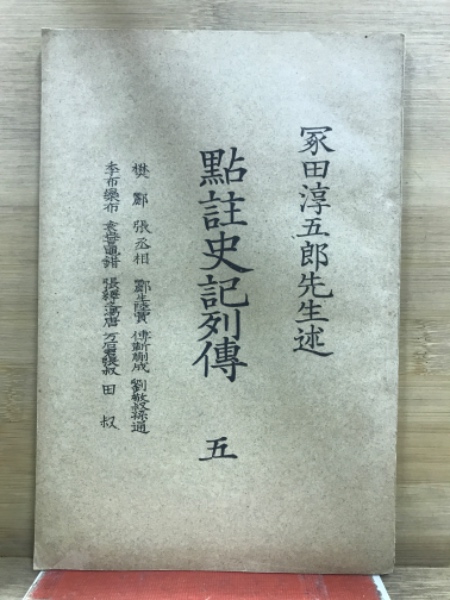 冢田淳五郎先生述
點註史記列傳 五
樊酈 張丞相 酈生陸賈 傅靳蒯成 劉敬叔孫通
季布欒布 袁盎鼂錯 張釋之馮唐 万石君張叔 田叔